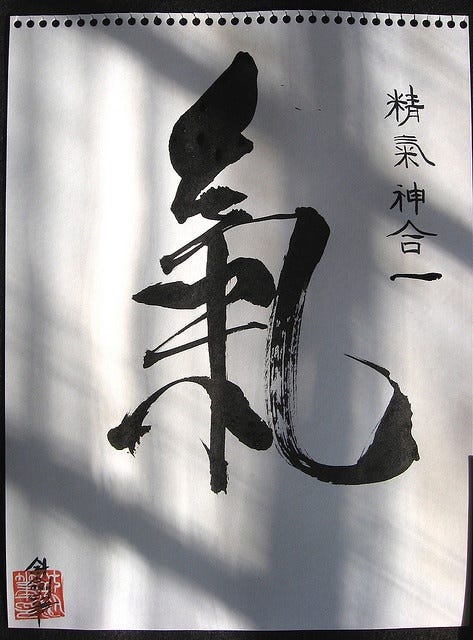 氣
精氣神合一